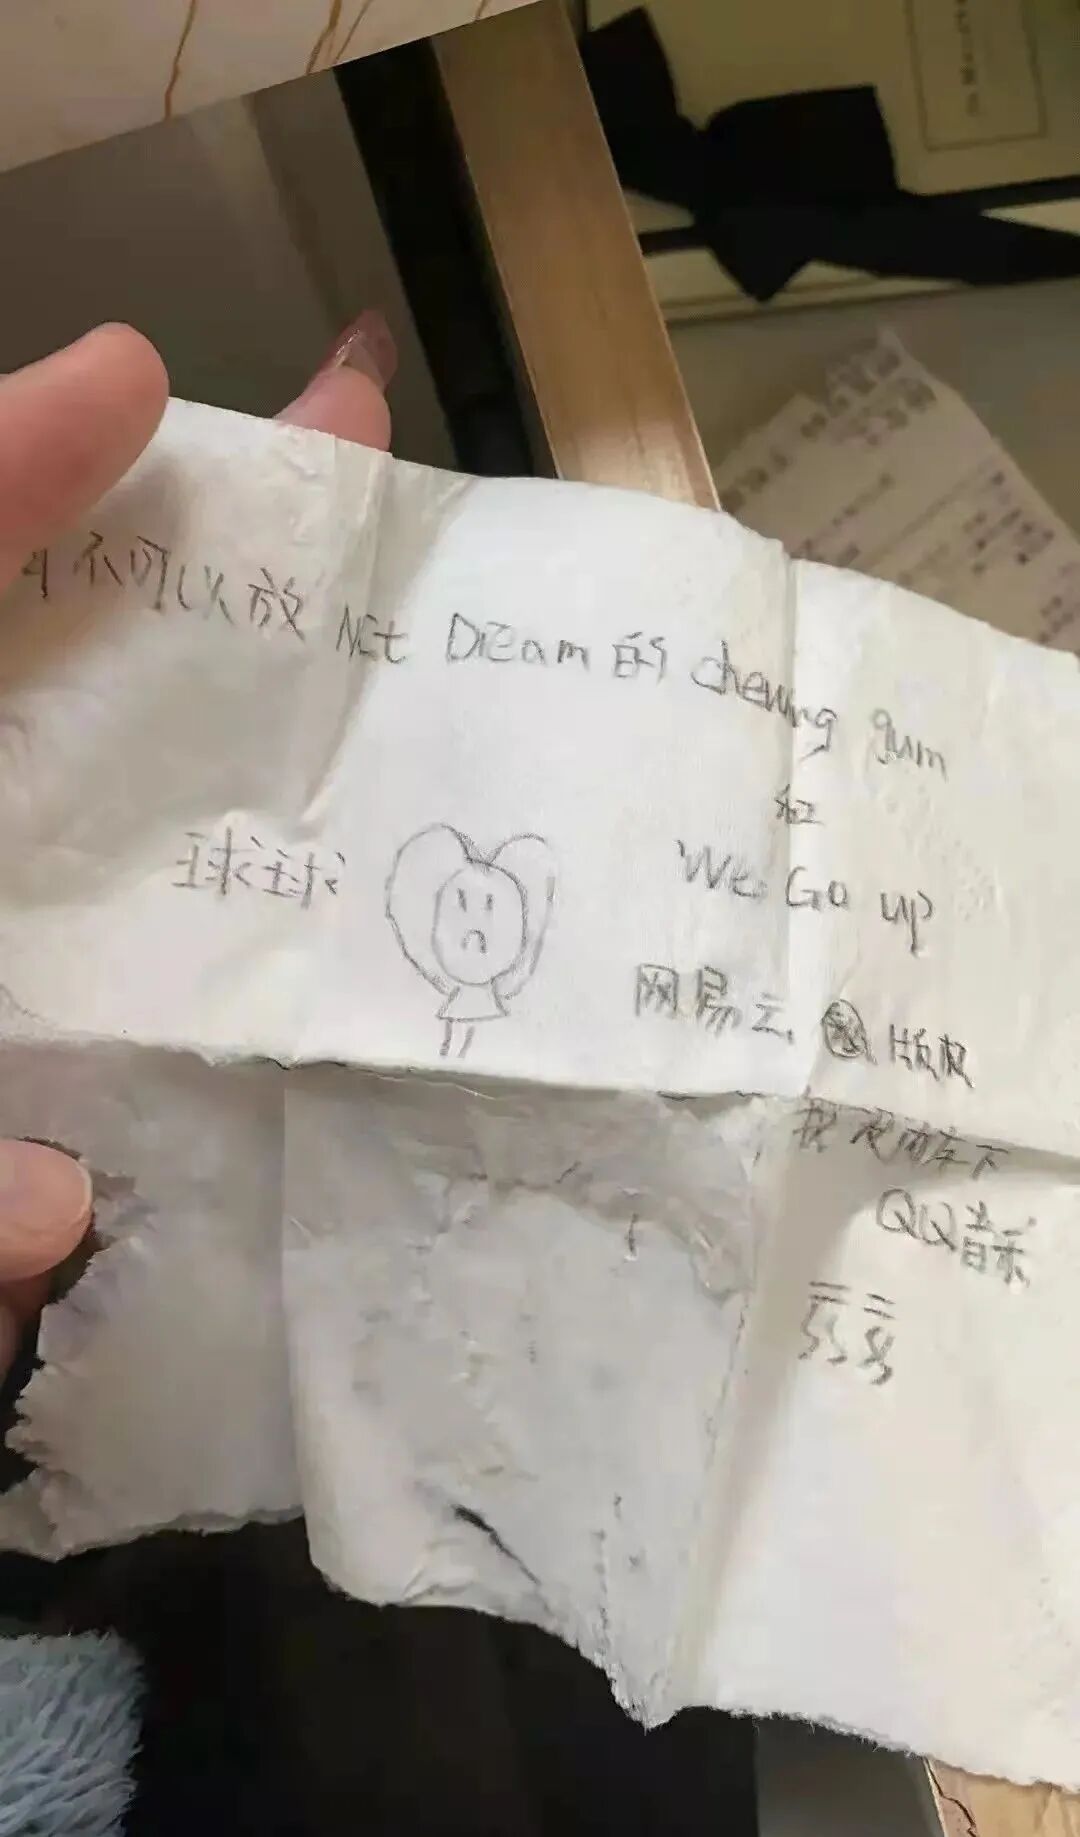 可不可以放 Nct Dream 的 chewing gum
和
We Go up
球球
网易云 版权
我没有下
QQ音乐